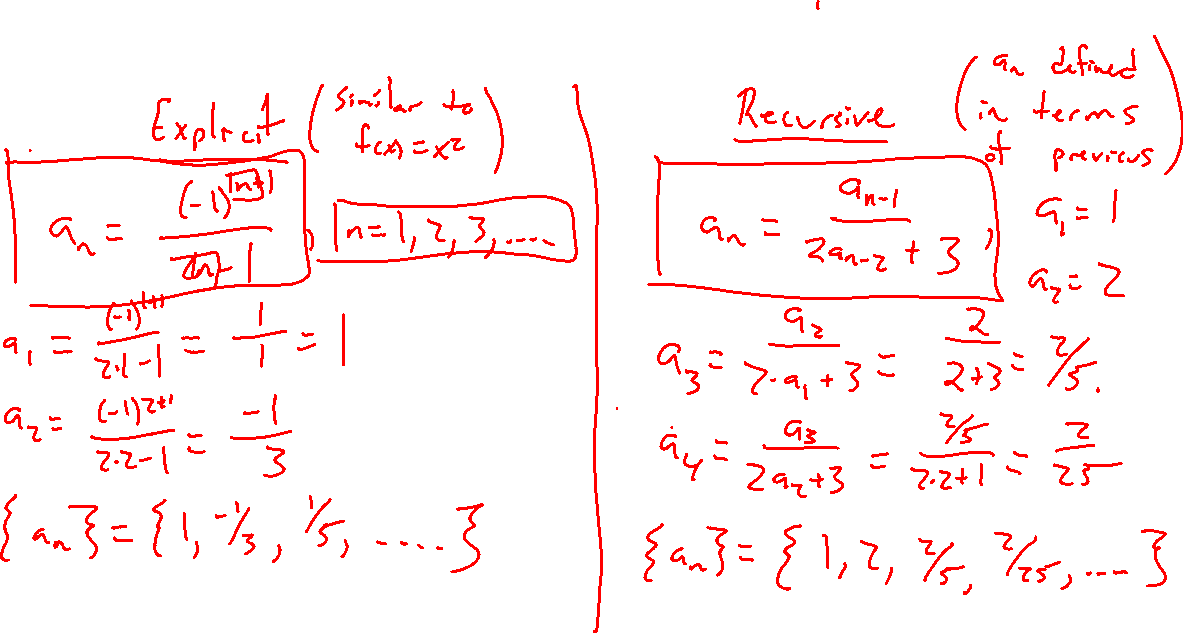 Explicit (similar to
f(x)=x²)
aₙ = (-1)^(n+1) / (2n-1), n=1, 2, 3, ....
a₁ = (-1)^(1+1) / (2·1-1) = 1/1 = 1
a₂ = (-1)^(2+1) / (2·2-1) = -1/3
{aₙ} = {1, -1/3, 1/5, ....}
Recursive (aₙ defined
in terms
of previous)
aₙ = aₙ₋₁ / (2aₙ₋₂ + 3), a₁ = 1
a₂ = 2
a₃ = a₂ / (2·a₁ + 3) = 2 / (2+3) = 2/5.
a₄ = a₃ / (2a₂+3) = (2/5) / (2·2+1) = 2/25
{aₙ} = {1, 2, 2/5, 2/25, ....}